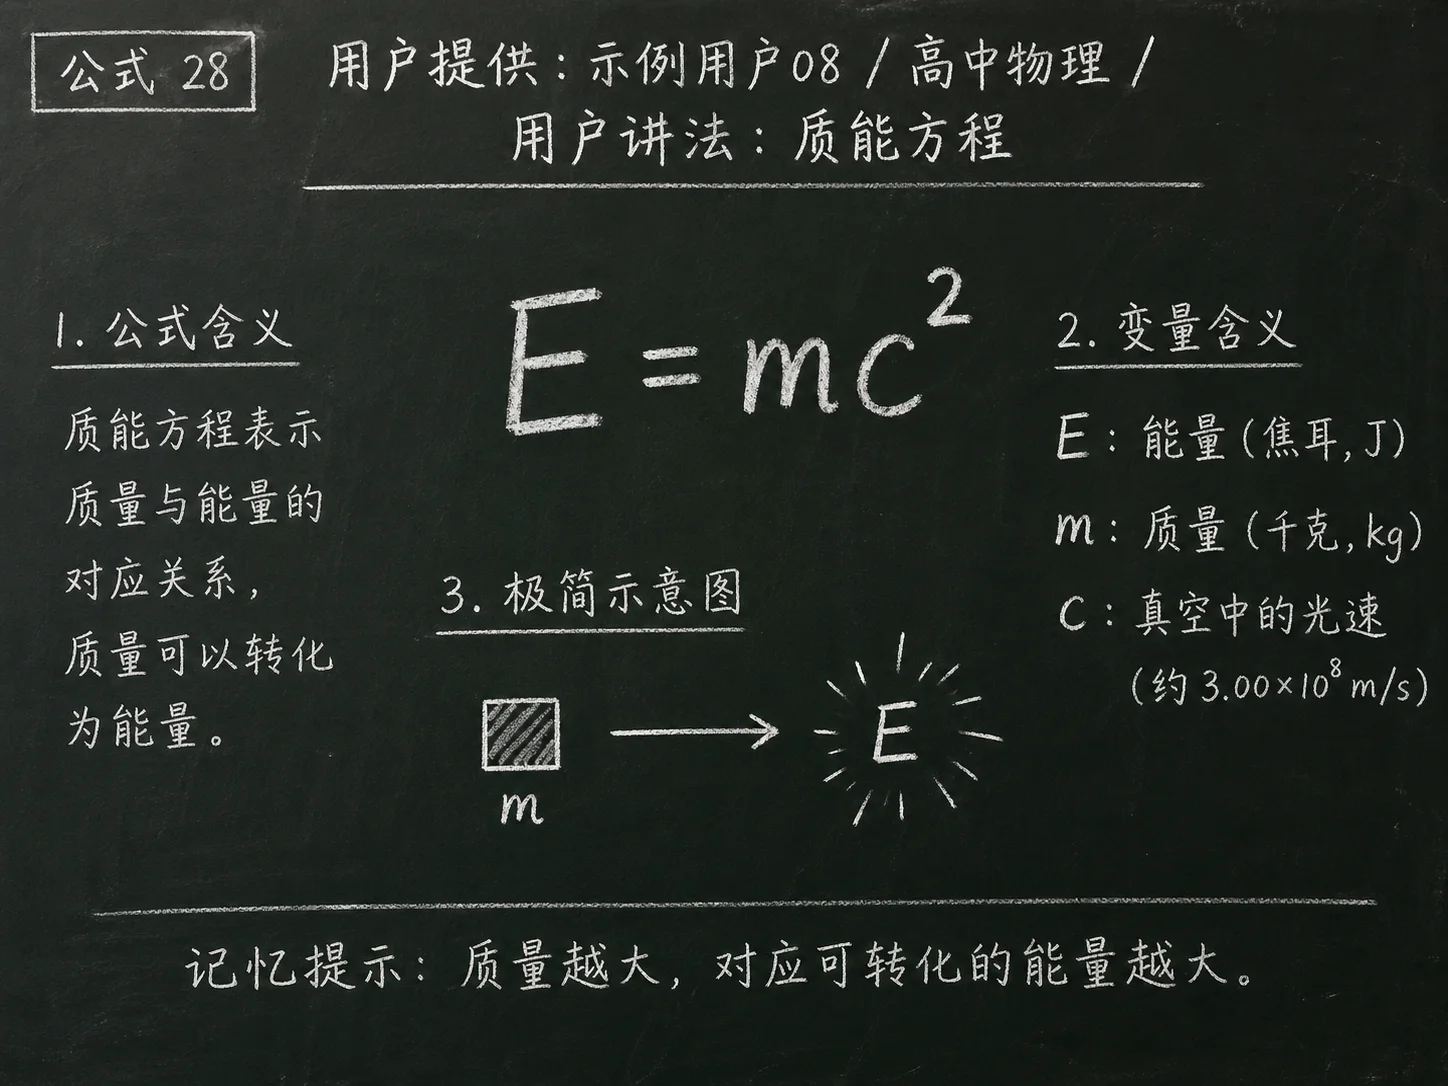 公式 28
用户提供：示例用户08 / 高中物理 /
用户讲法：质能方程
E = mc²
1. 公式含义
质能方程表示
质量与能量的
对应关系，
质量可以转化
为能量。
2. 变量含义
E：能量(焦耳, J)
m：质量(千克, kg)
c：真空中的光速
(约 3.00×10⁸ m/s)
3. 极简示意图
m
E
记忆提示：质量越大，对应可转化的能量越大。